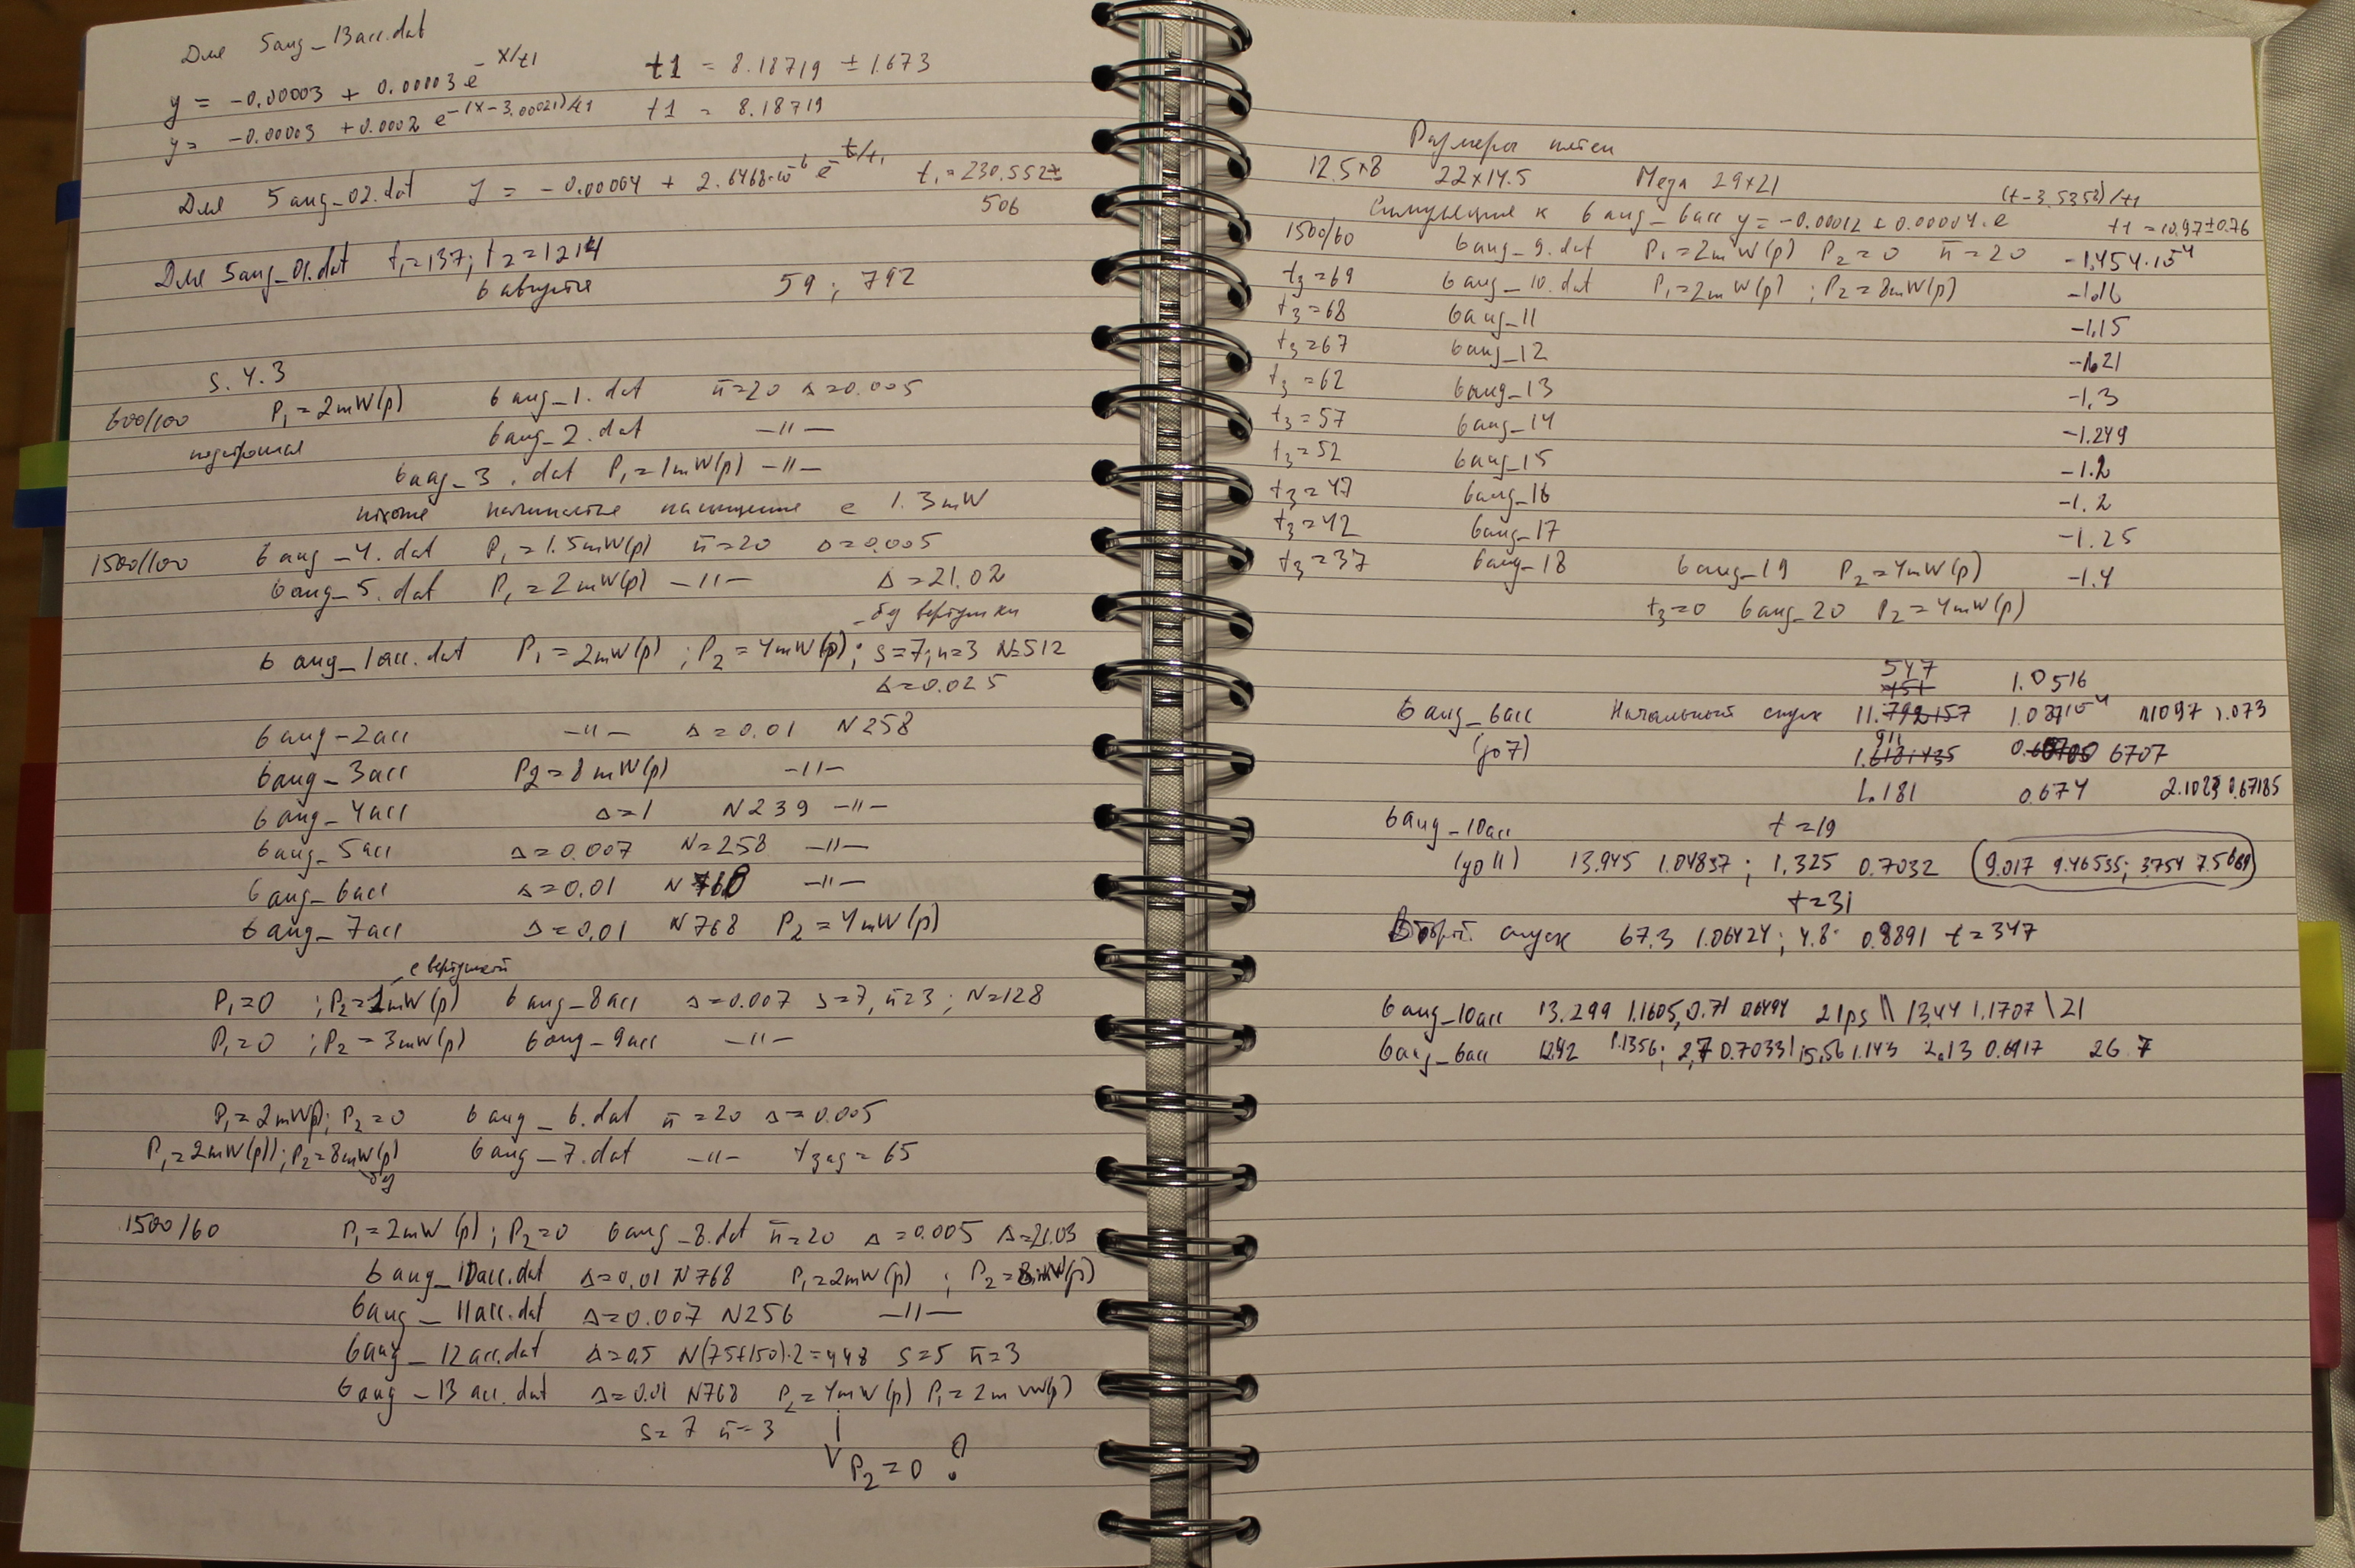 Для 5aug_13acc.dat
y = -0.00003 + 0.00003 e^-x/t1 t1 = 8.18719 ± 1.673
y = -0.00003 + 0.0002 e^-(x-3.00021)/t1 t1 = 8.18719
Для 5aug_02.dat y = -0.00004 + 2.6468·10^-6 e^-t/t1 t1 = 230.552±
506
Для 5aug_01.dat t1=137; t2=1214
6 августа 59 ; 792
S.4.3
600/100 P1=2mW(p) 6aug_1.dat n̄=20 Δ=0.005
6aug_2.dat -"-
6aug_3.dat P1=1mW(p) -"-
похоже насыщение с 1.3mW
1500/100 6aug_4.dat P1=1.5mW(p) n̄=20 Δ=0.005
6aug_5.dat P1=2mW(p) -"- Δ=21.02
6aug_1acc.dat P1=2mW(p) ; P2=4mW(p); s=7; n=3 N=512
Δ=0.025
6aug_2acc -"- Δ=0.01 N258
6aug_3acc P2=8mW(p) -"-
6aug_4acc Δ=1 N239 -"-
6aug_5acc Δ=0.007 N=258 -"-
6aug_6acc Δ=0.01 N768 -"-
6aug_7acc Δ=0.01 N768 P2=4mW(p)
P1=0 ; P2=1mW(p) 6aug_8acc Δ=0.007 s=7, n̄=3; N=128
P1=0 ; P2=3mW(p) 6aug_9acc -"-
P1=2mW(p); P2=0 6aug_6.dat n̄=20 Δ=0.005
P1=2mW(p); P2=8mW(p) 6aug_7.dat -"- tзад=65
1500/60 P1=2mW(p); P2=0 6aug_8.dat n̄=20 Δ=0.005 Δ=21.03
6aug_10acc.dat Δ=0.01 N768 P1=2mW(p) ; P2=8mW(p)
6aug_11acc.dat Δ=0.007 N256 -"-
6aug_12acc.dat Δ=0.5 N(75+150)·2=448 s=5 n̄=3
6aug_13acc.dat Δ=0.01 N768 P2=4mW(p) P1=2mW(p)
s=7 n̄=3
P2=0 ?
Размеры пятен
12.5×8 22×14.5 Мера 29×21
к 6aug_6acc y=-0.00012+0.00004·e^(t-3.5358)/t1 t1=10.97±0.76
1500/60 6aug_9.dat P1=2mW(p) P2=0 n̄=20 -1.454·10^-4
t3=69 6aug_10.dat P1=2mW(p) ; P2=8mW(p) -1.16
t3=68 6aug_11 -1.15
t3=67 6aug_12 -1.21
t3=62 6aug_13 -1.3
t3=57 6aug_14 -1.249
t3=52 6aug_15 -1.2
t3=47 6aug_16 -1.2
t3=42 6aug_17 -1.25
t3=37 6aug_18 6aug_19 P2=4mW(p) -1.4
t3=0 6aug_20 P2=4mW(p)
547 1.0516
6aug_6acc Начальный спуск 11.792157 1.073
(до 7) 6707
1.181 0.674 2.1023 0.67185
6aug_10acc t=19
(до 11) 13.945 1.04837 ; 1.325 0.7032 (9.017 9.46535; 3.754 7.5669)
t=31
Второй спуск 67.3 1.06424; 4.8 0.8891 t=347
6aug_10acc 13.299 1.1605, 0.71 0.6494 21ps || 13.44 1.1707 \ 21
6aug_6acc 12.42 1.1356; 2.7 0.7033 | 15.56 1.143 2.13 0.6917 26.7